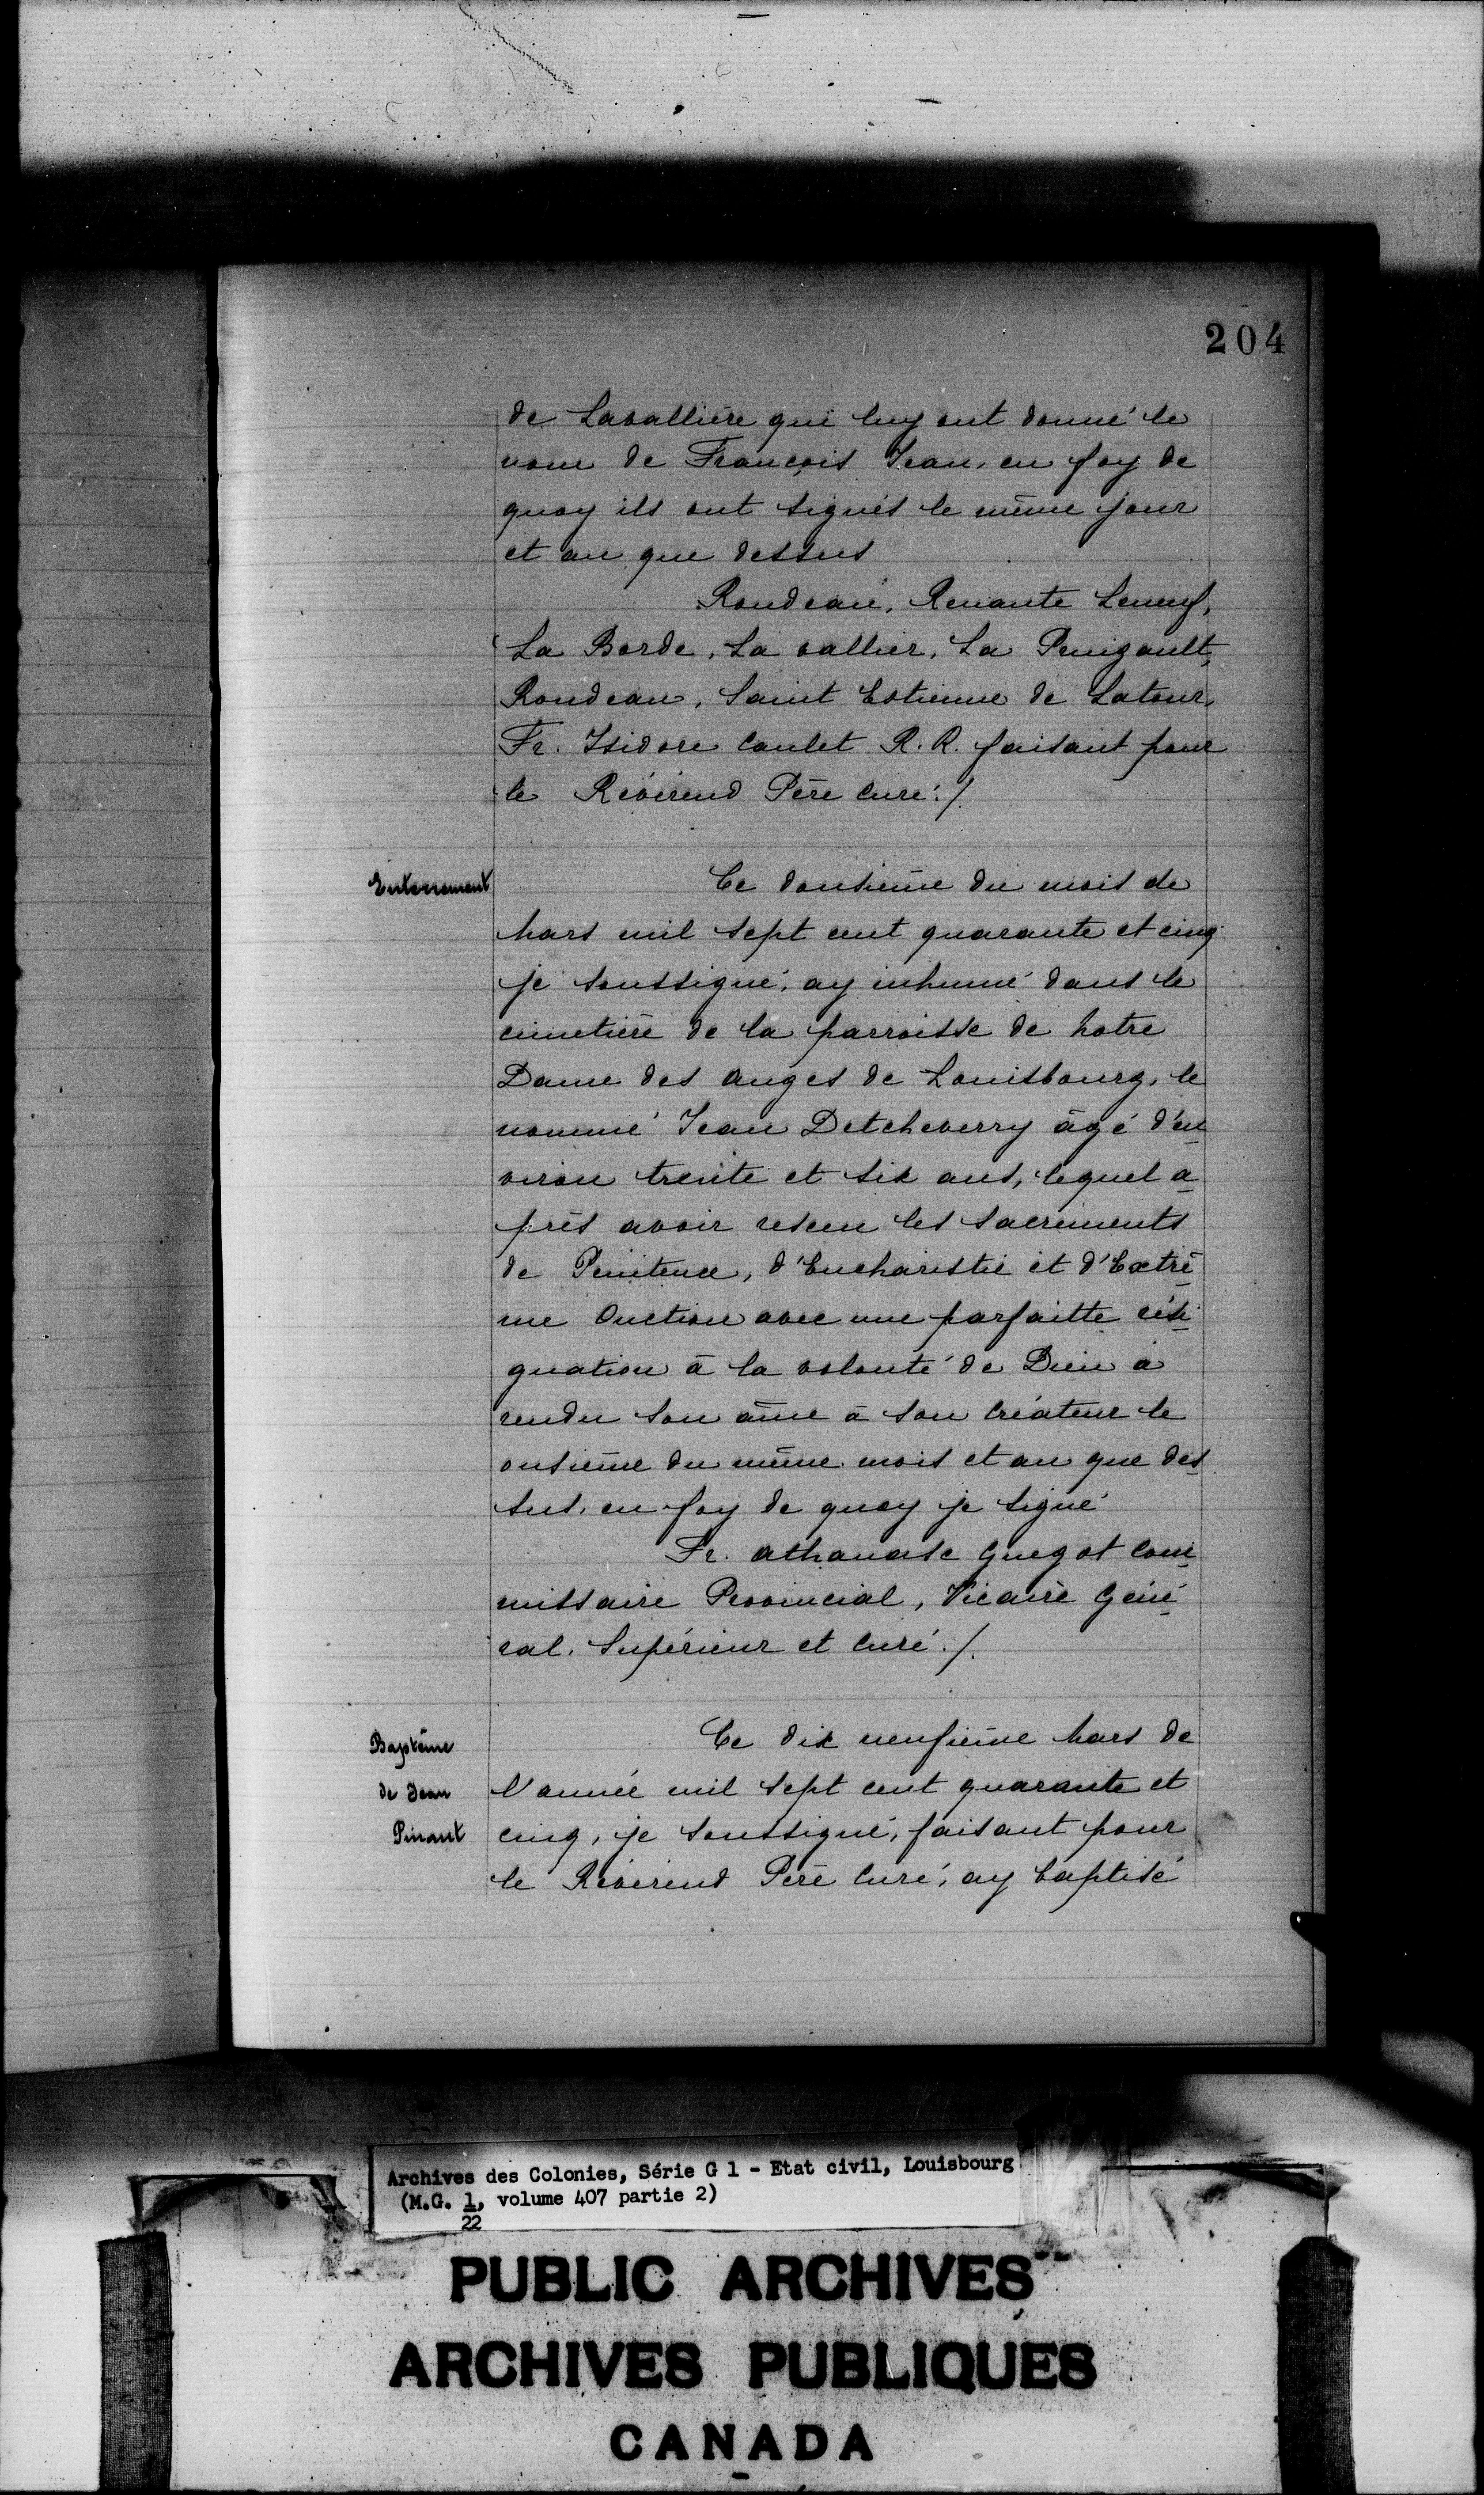 204
de Lavallière qui luy ont donné le
nom de François Jean, en foy de
quoy ils ont signés le même jour
et an que dessus
Rondeau, Renante Leneuf,
La Borde, La vallier, La Penigault,
Rondeau, Saint Estienne de Latour,
Fr. Isidore Caulet R. R. faisant pour
le Révérend Père Curé./.
Enterrement
Ce dousième du mois de
Mars mil sept cent quarante et cinq
je soussigné, ay inhumé dans le
cimetière de la parroisse de Notre
Dame des Anges de Louisbourg, le
nommé Jean Detcheverry âgé d'en
viron trente et six ans, lequel a
près avoir reseu les Sacrements
de Penitence, d'Eucharistie et d'Extrè
me Onction avec une parfaitte rési
gnation à la volonté de Dieu a
rendu son âme à son Créateur le
onsième du même mois et an que des
sus, en foy de quoy je signé
Fr. Athanase Guegot Com
missaire Provincial, Vicaire Géné
ral, Supérieur et Curé./.
Baptême
de Jean
Pinant
Ce dix neufième Mars de
l'année mil sept cent quarante et
cinq, je soussigné, faisant pour
le Révérend Père Curé, ay baptisé
Archives des Colonies, Série G 1 - Etat civil, Louisbourg
(M.G. 1, volume 407 partie 2)
22
PUBLIC ARCHIVES
ARCHIVES PUBLIQUES
CANADA